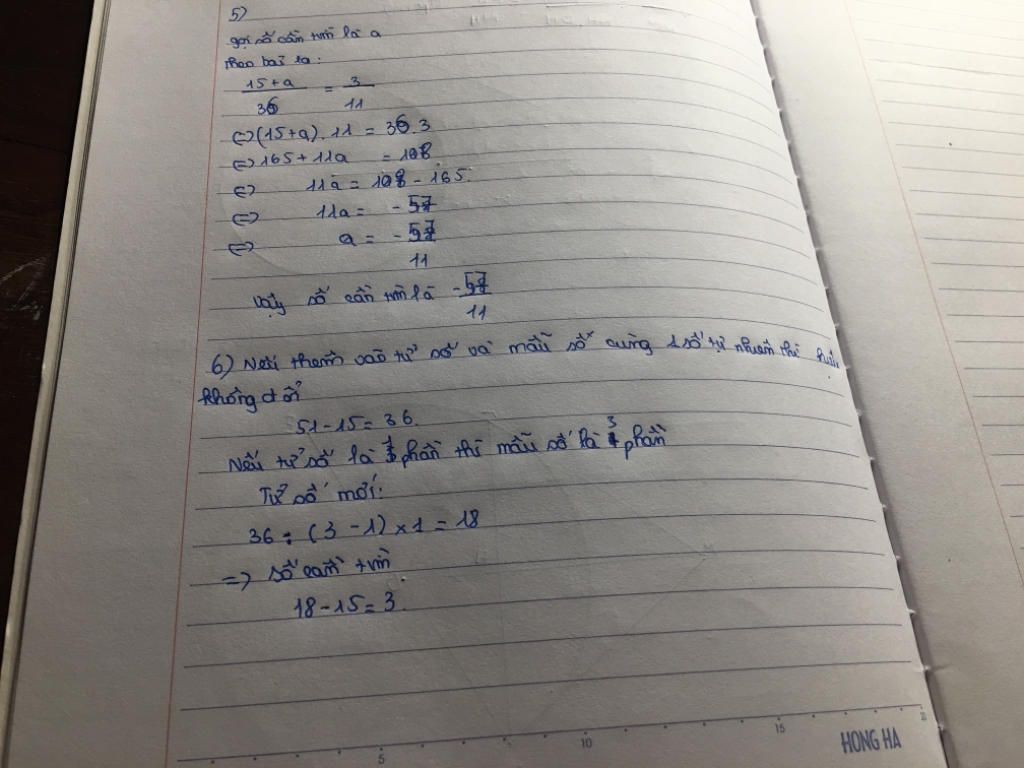 5)
gọi số cần tìm là a
theo bài ta:
15+a / 36 = 3 / 11
<=> (15+a). 11 = 36.3
<=> 165 + 11a = 108
<=> 11a = 108 - 165.
<=> 11a = - 57
<=> a = - 57 / 11
Vậy số cần tìm là - 57 / 11
6) Nếu thêm vào tử số và mẫu số cùng 1 số tự nhiên thì hiệu
không đổi
51-15=36.
Nếu tử số là 1 phần thì mẫu số là 3 phần
Tử số mới:
36 : (3 - 1) x 1 = 18
=> số cần tìm
18-15=3.
5 10 15
HONG HA